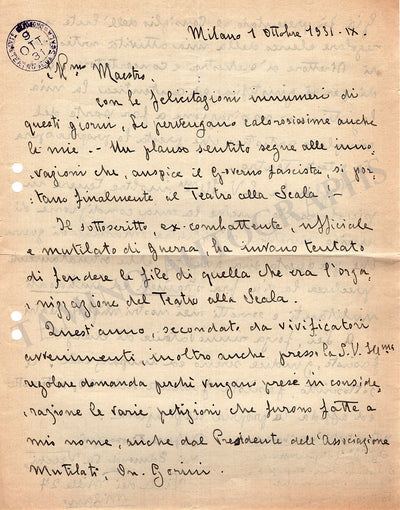 Milano 1 Ottobre 1931-IX.
9 OTT. 31
Ill.mo Maestro,
con le felicitazioni innumeri di
questi giorni, Le pervengano calorosissime anche
le mie -- Un plauso sentito segue alle inno-
vazioni che, auspice il Governo fascista, si por-
tano finalmente al Teatro alla Scala -
Il sottoscritto, ex-combattente, ufficiale
e mutilato di guerra, ha invano tentato
di fendere le file di quella che era l'orga-
nizzazione del Teatro alla Scala.
Quest'anno, secondato da vivificatori
avvenimenti, inoltro anche presso la S.V. Ill.ma
regolare domanda perchè vengano prese in conside-
razione le varie petizioni che furono fatte a
mio nome, anche dal Presidente dell'Associazione
Mutilati, On. Gorini.